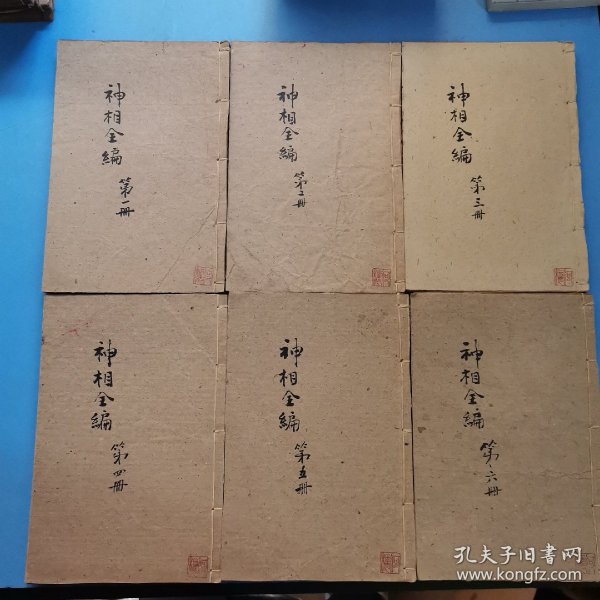 神相全編
第一冊
神相全編
第二冊
神相全編
第三冊
神相全編
第四冊
神相全編
第五冊
神相全編
第六冊
孔夫子旧书网
www.kongfz.com